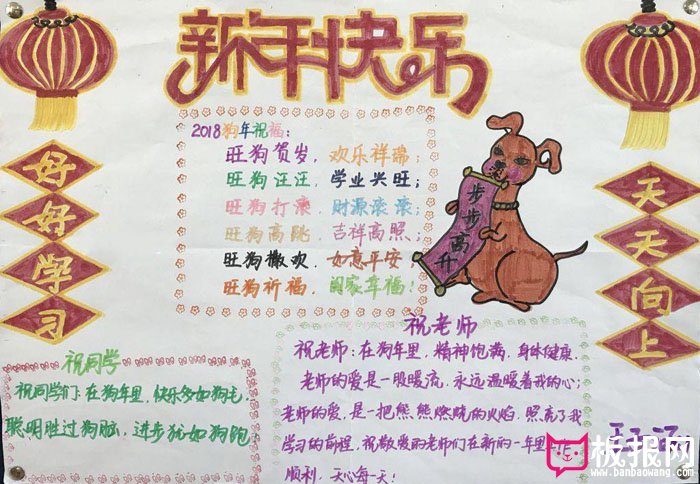 新年快乐
好好学习
天天向上
2018狗年祝福:
旺狗贺岁,欢乐祥瑞;
旺狗汪汪,学业兴旺;
旺狗打滚,财源滚滚;
旺狗高跳,吉祥高照;
旺狗撒欢,如意平安;
旺狗祈福,阖家幸福!
步步高升
祝同学
祝同学们:在狗年里,快乐多如狗毛,
聪明胜过狗脑,进步犹如狗跑
祝老师
祝老师:在狗年里,精神饱满,身体健康.
老师的爱是一股暖流,永远温暖着我的心;
老师的爱,是一把熊熊燃烧的火焰,照亮了我
学习的前程,祝敬爱的老师们在新的一年里
顺利,天心每天!
板报网
www.banbaowang.com